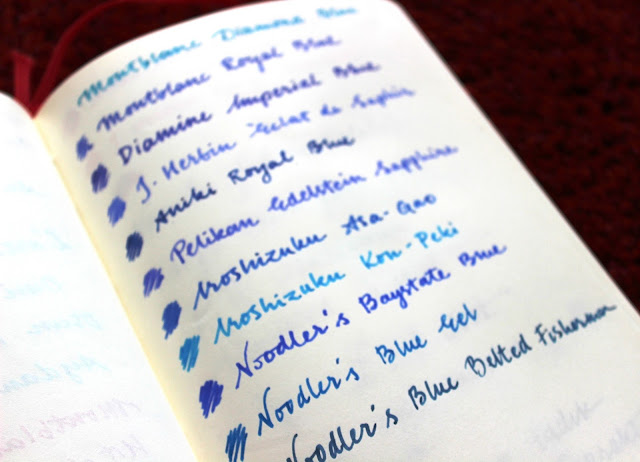 Montblanc Diamond Blue
Montblanc Royal Blue
Diamine Imperial Blue
J. Herbin Eclat de Saphir
Aniki Royal Blue
Pelikan Edelstein Sapphire
Iroshizuku Asa-Gao
Iroshizuku Kon-Peki
Noodler's Baystate Blue
Noodler's Blue Gel
Noodler's Blue Belted Fisherman